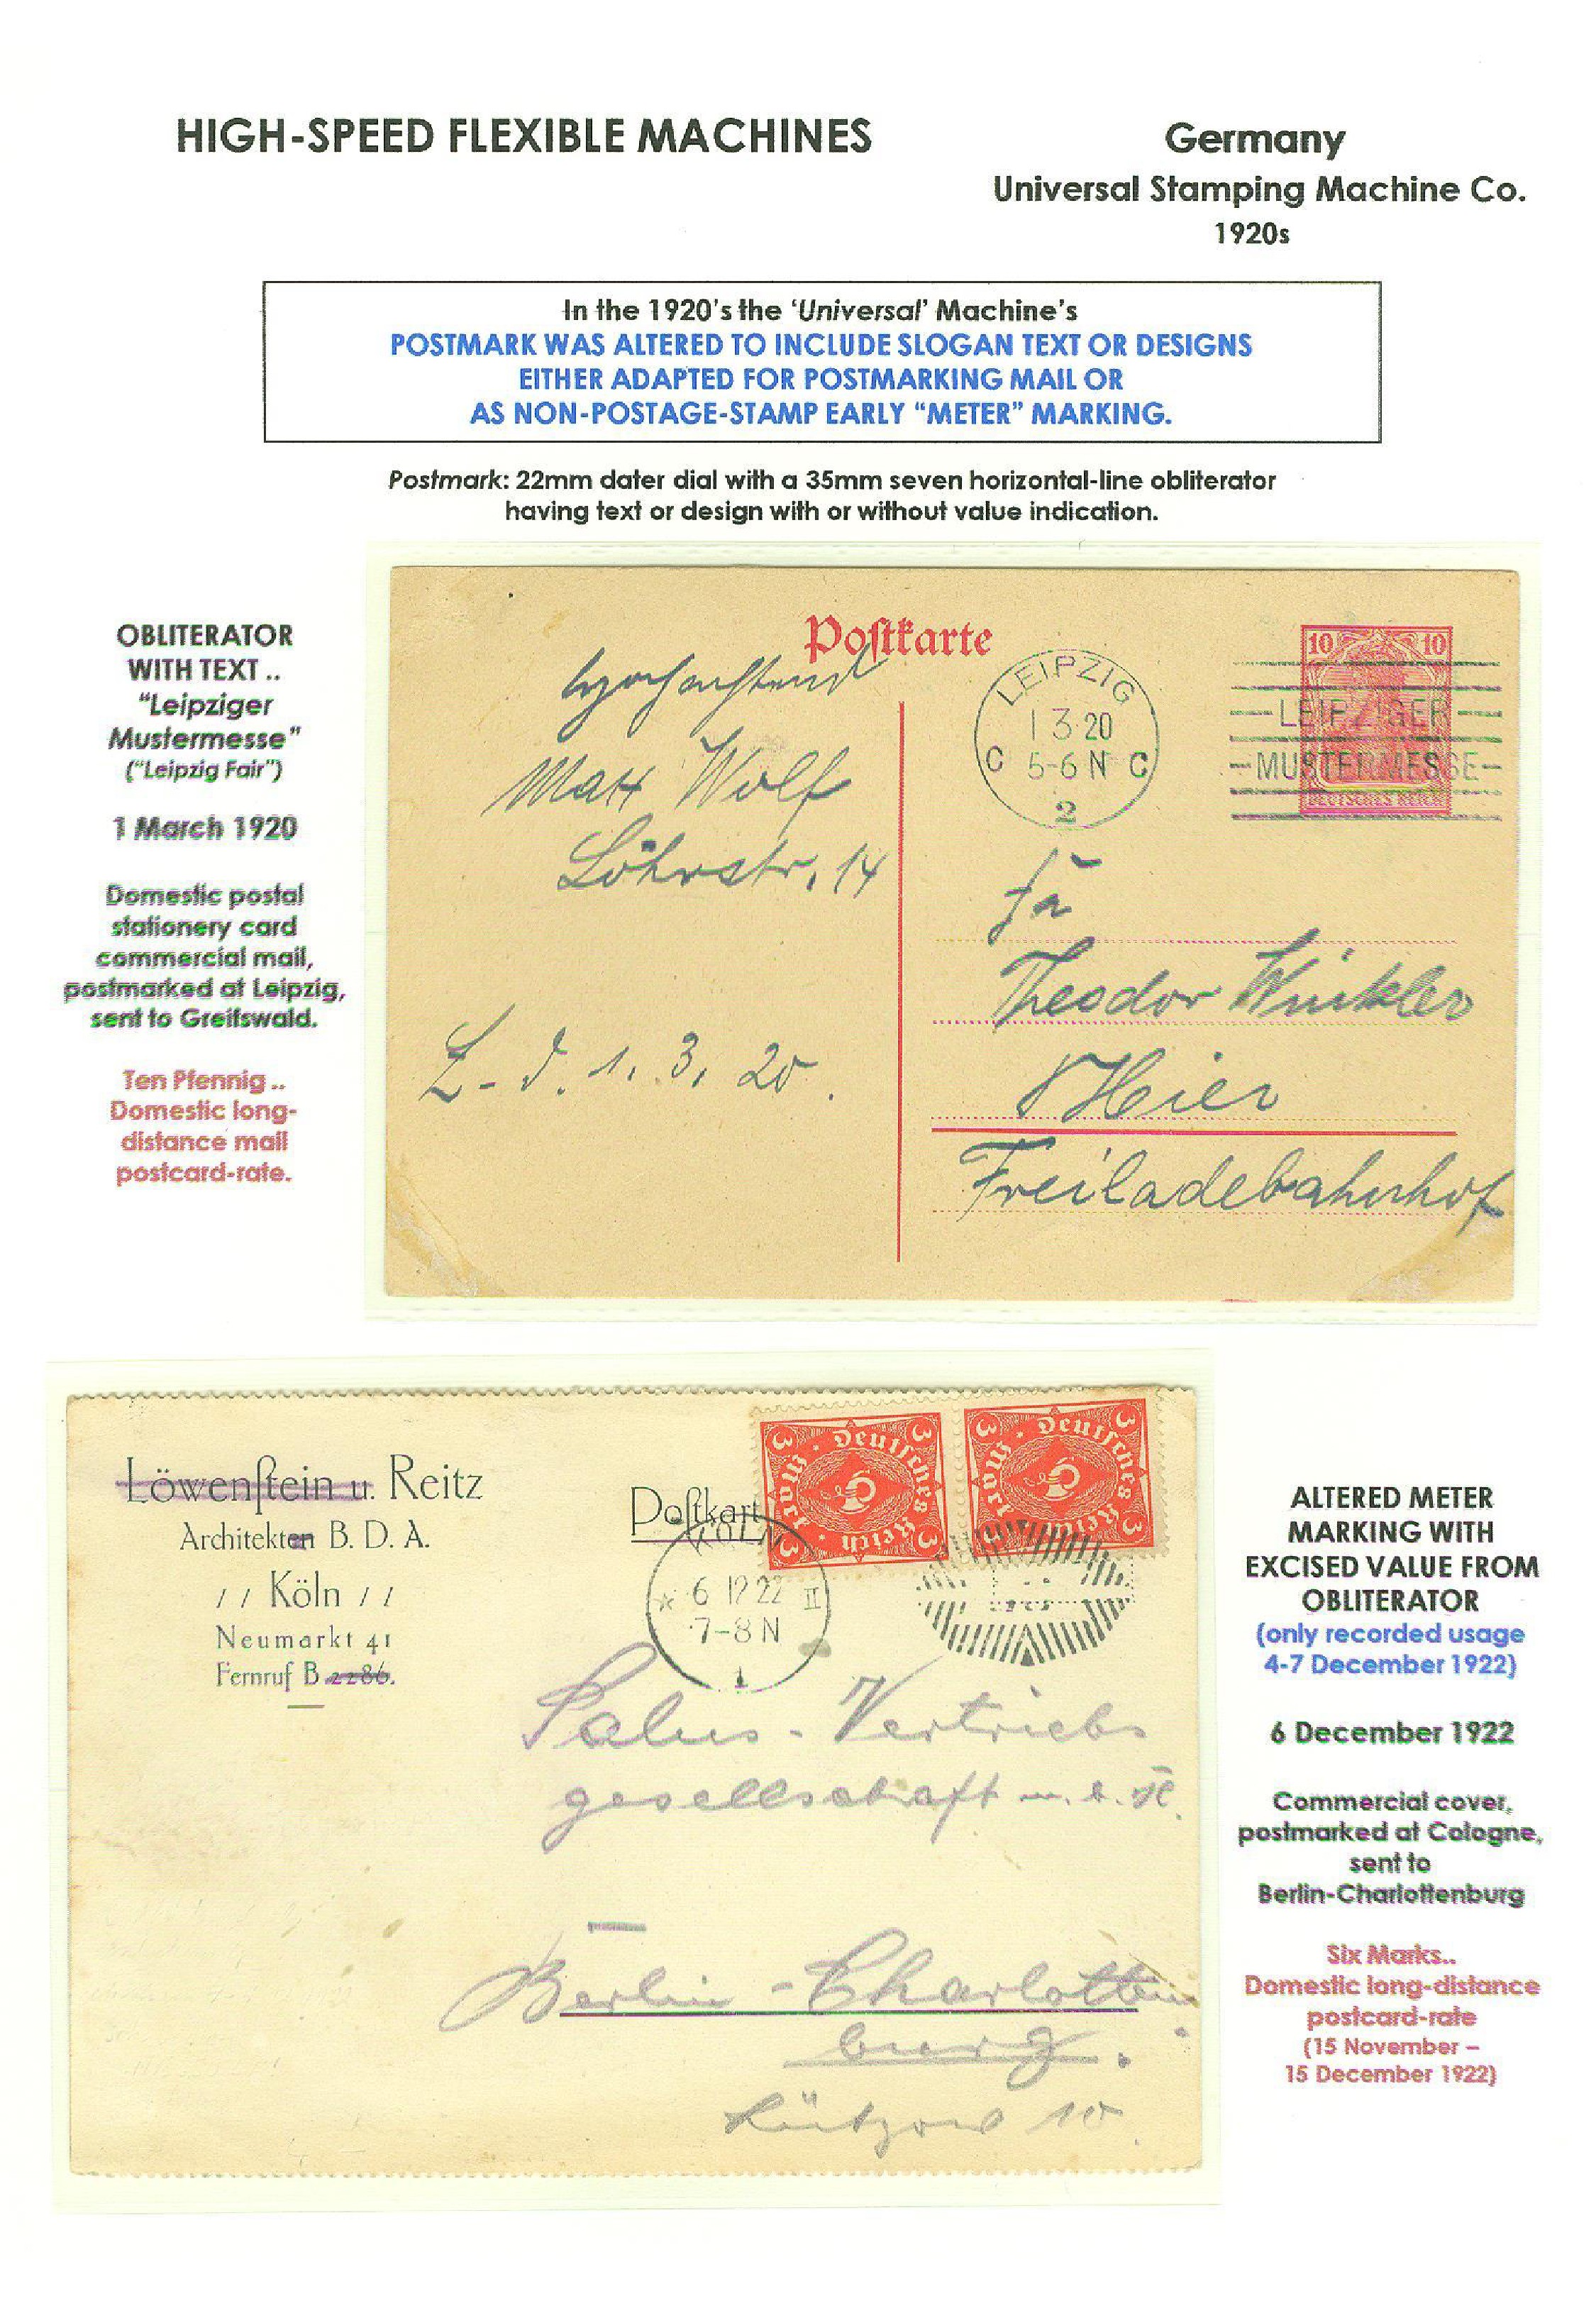 HIGH-SPEED FLEXIBLE MACHINES
Germany
Universal Stamping Machine Co.
1920s
In the 1920's the 'Universal' Machine's
POSTMARK WAS ALTERED TO INCLUDE SLOGAN TEXT OR DESIGNS
EITHER ADAPTED FOR POSTMARKING MAIL OR
AS NON-POSTAGE-STAMP EARLY "METER" MARKING.
Postmark: 22mm dater dial with a 35mm seven horizontal-line obliterator
having text or design with or without value indication.
OBLITERATOR
WITH TEXT ..
"Leipziger
Mustermesse"
("Leipzig Fair")
1 March 1920
Domestic postal
stationery card
commercial mail,
postmarked at Leipzig,
sent to Greifswald.
Ten Pfennig ..
Domestic long-
distance mail
postcard-rate.
Postkarte
10 10
DEUTSCHES REICH
LEIPZIG
1 3 20
C 5-6 N C
2
LEIPZIGER
MUSTERMESSE
Max Wolf
Löhrstr. 14
L-d. 1. 3. 20.
Fa
Theodor Winkler
Hier
Freiladebahnhof
Löwenstein u. Reitz
Architekten B. D. A.
// Köln //
Neumarkt 41
Fernruf B 2286.
Postkart
3 Deutsches Reich 3
3 Mark 3
3 Deutsches Reich 3
3 Mark 3
KÖLN
* 6 12 22 II
7-8 N
1
Salus-Vertriebs
gesellschaft m. b. H.
Berlin-Charlotten
burg.
Lützow 10.
ALTERED METER
MARKING WITH
EXCISED VALUE FROM
OBLITERATOR
(only recorded usage
4-7 December 1922)
6 December 1922
Commercial cover,
postmarked at Cologne,
sent to
Berlin-Charlottenburg
Six Marks..
Domestic long-distance
postcard-rate
(15 November –
15 December 1922)